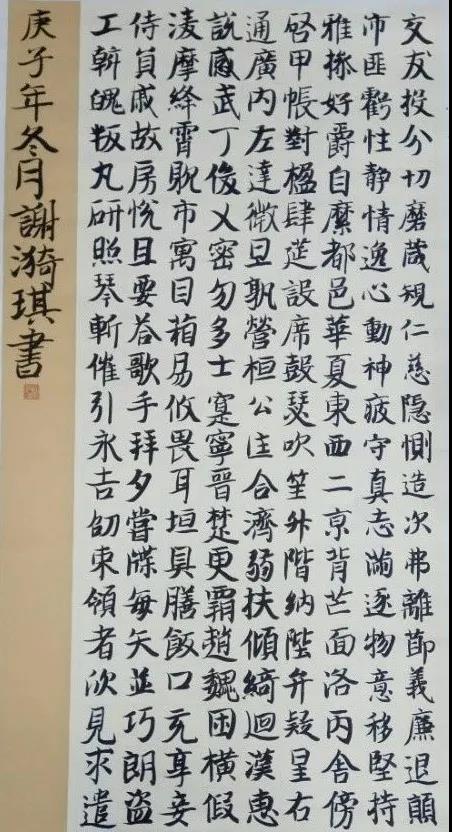 交友投分切磨箴規仁慈隱惻造次弗離節義廉退顛
沛匪虧性靜情逸心動神疲守真志滿逐物意移堅持
雅操好爵自縻都邑華夏東西二京背芒面洛丙舍傍
啓甲帳對楹肆筵設席鼓瑟吹笙升階納陛弁疑星右
通廣內左達徵旦孰營桓公匡合濟弱扶傾綺迴漢惠
說感武丁俊乂密勿多士寔寧晉楚更霸趙魏困橫假
凌摩絳霄耽市寓目箱易攸畏耳垣具膳飯口充享妾
侍負戚故房悅且要答歌手拜夕嘗牒每矢並巧朗盜
工斡魄叛丸研照琴斬催引永吉劭束領者欣見求遣
庚子年冬月謝漪琪書